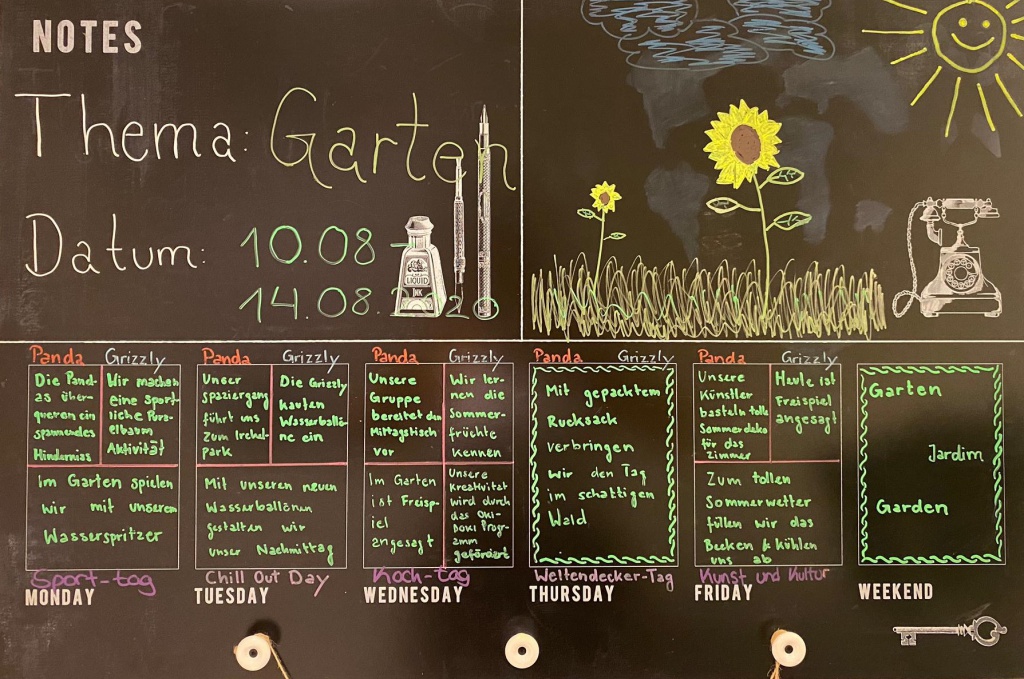 NOTES
Thema: Garten
Datum: 10.08 -
14.08.2020
LIQUID
INK
Panda Grizzly
Die Pand-
as über-
queren ein
spannendes
Hinderniss
Wir machen
eine Sport-
liche Purz-
elbaum
Aktivität
Im Garten spielen
wir mit unseren
Wasserspritzer
Sport-tag
MONDAY
Panda Grizzly
Unser
spaziergang
führt uns
Zum Irchel-
park
Die Grizzly
kaufen
Wasserballo-
ne ein
Mit unseren neuen
Wasserballonen
gestalten wir
unser Nachmittag
Chill Out Day
TUESDAY
Panda Grizzly
Unsere
Gruppe
bereitet den
Mittagstisch
vor
Wir ler-
nen die
Sommer-
früchte
kennen
Im Garten
ist Freisp-
iel
angesagt
Unsere
Kreativität
wird durch
das OKI-
DOKI Progr-
amm
gefördert
Koch-tag
WEDNESDAY
Panda Grizzly
Mit gepacktem
Rucksack
verbringen
wir den Tag
im schattigen
Wald
Weltendecker-Tag
THURSDAY
Panda Grizzly
Unsere
Künstler
basteln tolle
Sommerdeko
für das
Zimmer
Heute ist
Freispiel
angesagt
Zum tollen
Sommerwetter
füllen wir das
Becken & kühlen
uns ab
Kunst und Kultur
FRIDAY
Garten
Jardim
Garden
WEEKEND